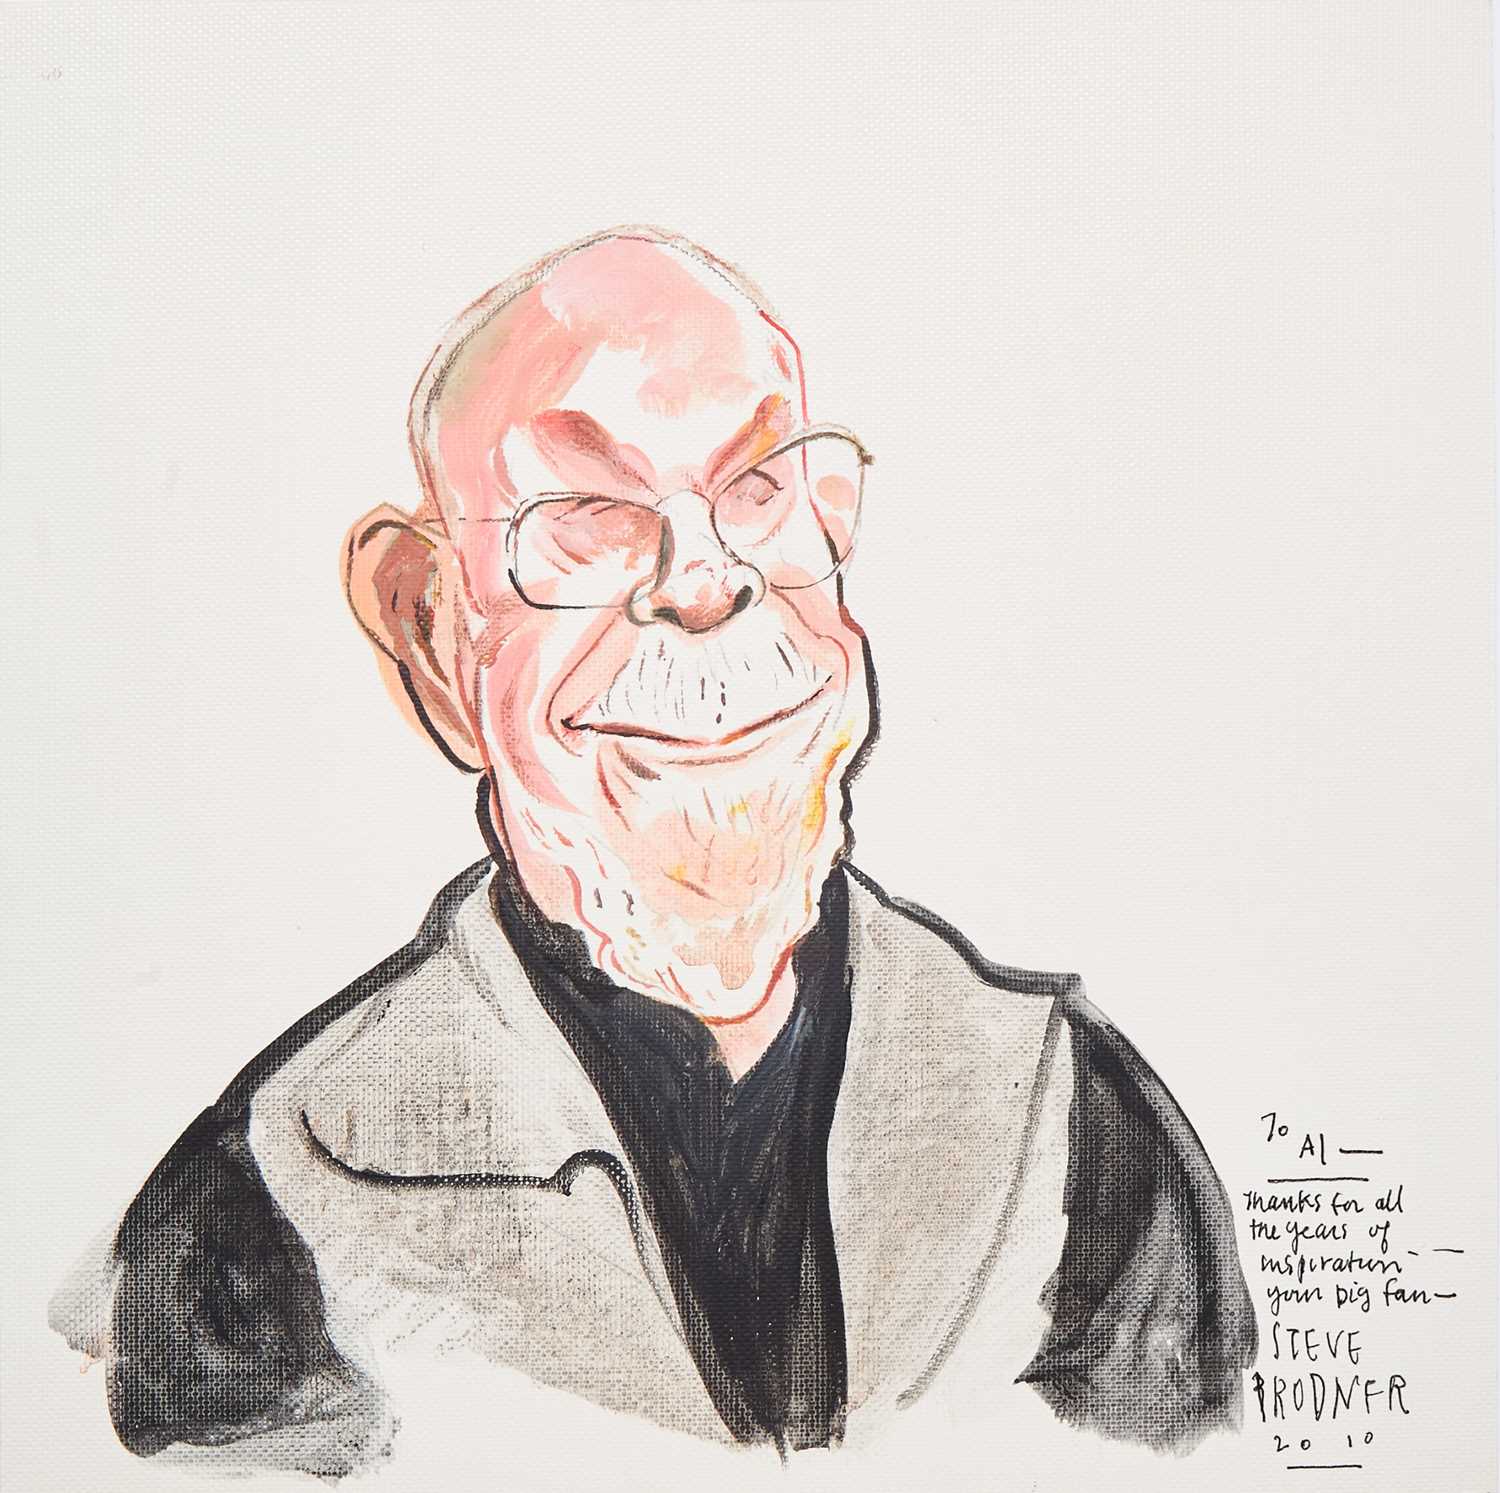 To
Al —
Thanks for all
the years of
inspiration —
your big fan —
STEVE
BRODNER
2010